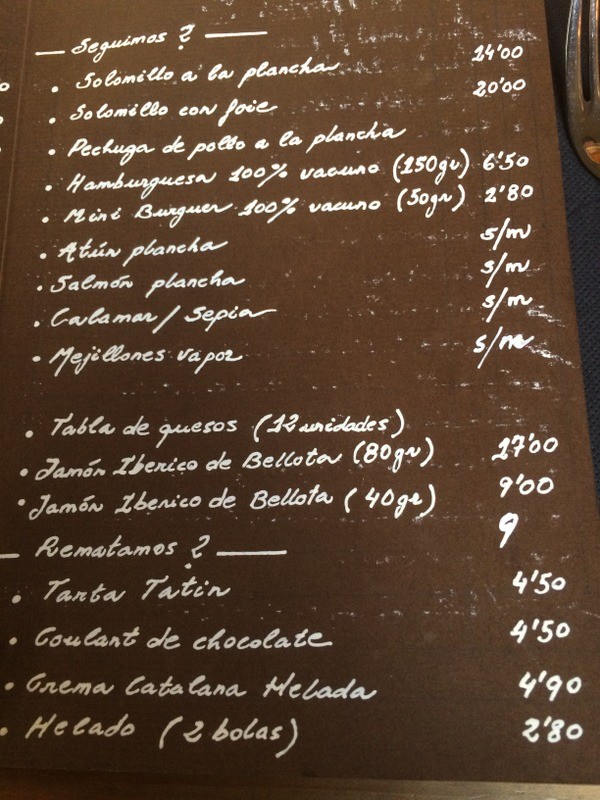 — Seguimos ? —
• Solomillo a la plancha 14'00
• Solomillo con foie 20'00
• Pechuga de pollo a la plancha
• Hamburguesa 100% vacuno (150gr) 6'50
• Mini Burguer 100% vacuno (50gr) 2'80
• Atún plancha s/m
• Salmón plancha s/m
• Calamar / Sepia s/m
• Mejillones vapor s/m
• Tabla de quesos (12 unidades)
• Jamón Iberico de Bellota (80gr) 17'00
• Jamón Iberico de Bellota (40gr) 9'00
— Rematamos ? — 9
• Tarta Tatin 4'50
• Coulant de chocolate 4'50
• Crema Catalana Helada 4'90
• Helado (2 bolas) 2'80